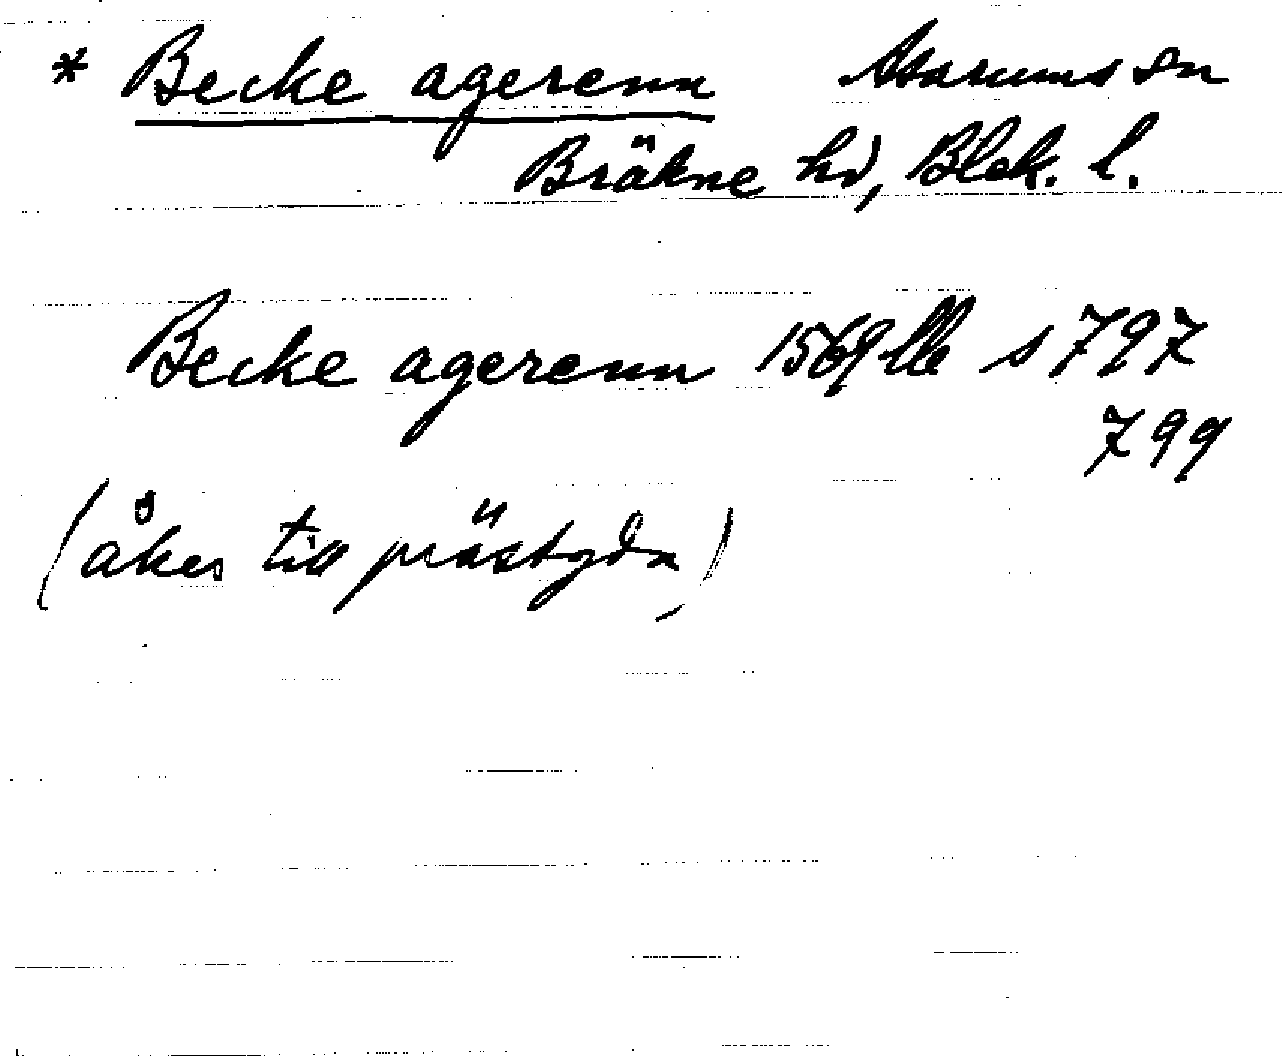 * Becke agerenn Asarums sn
Bräkne hd, Blek. l.
Becke agerenn 1569 llb s 797
799
(åker till prästgdn)